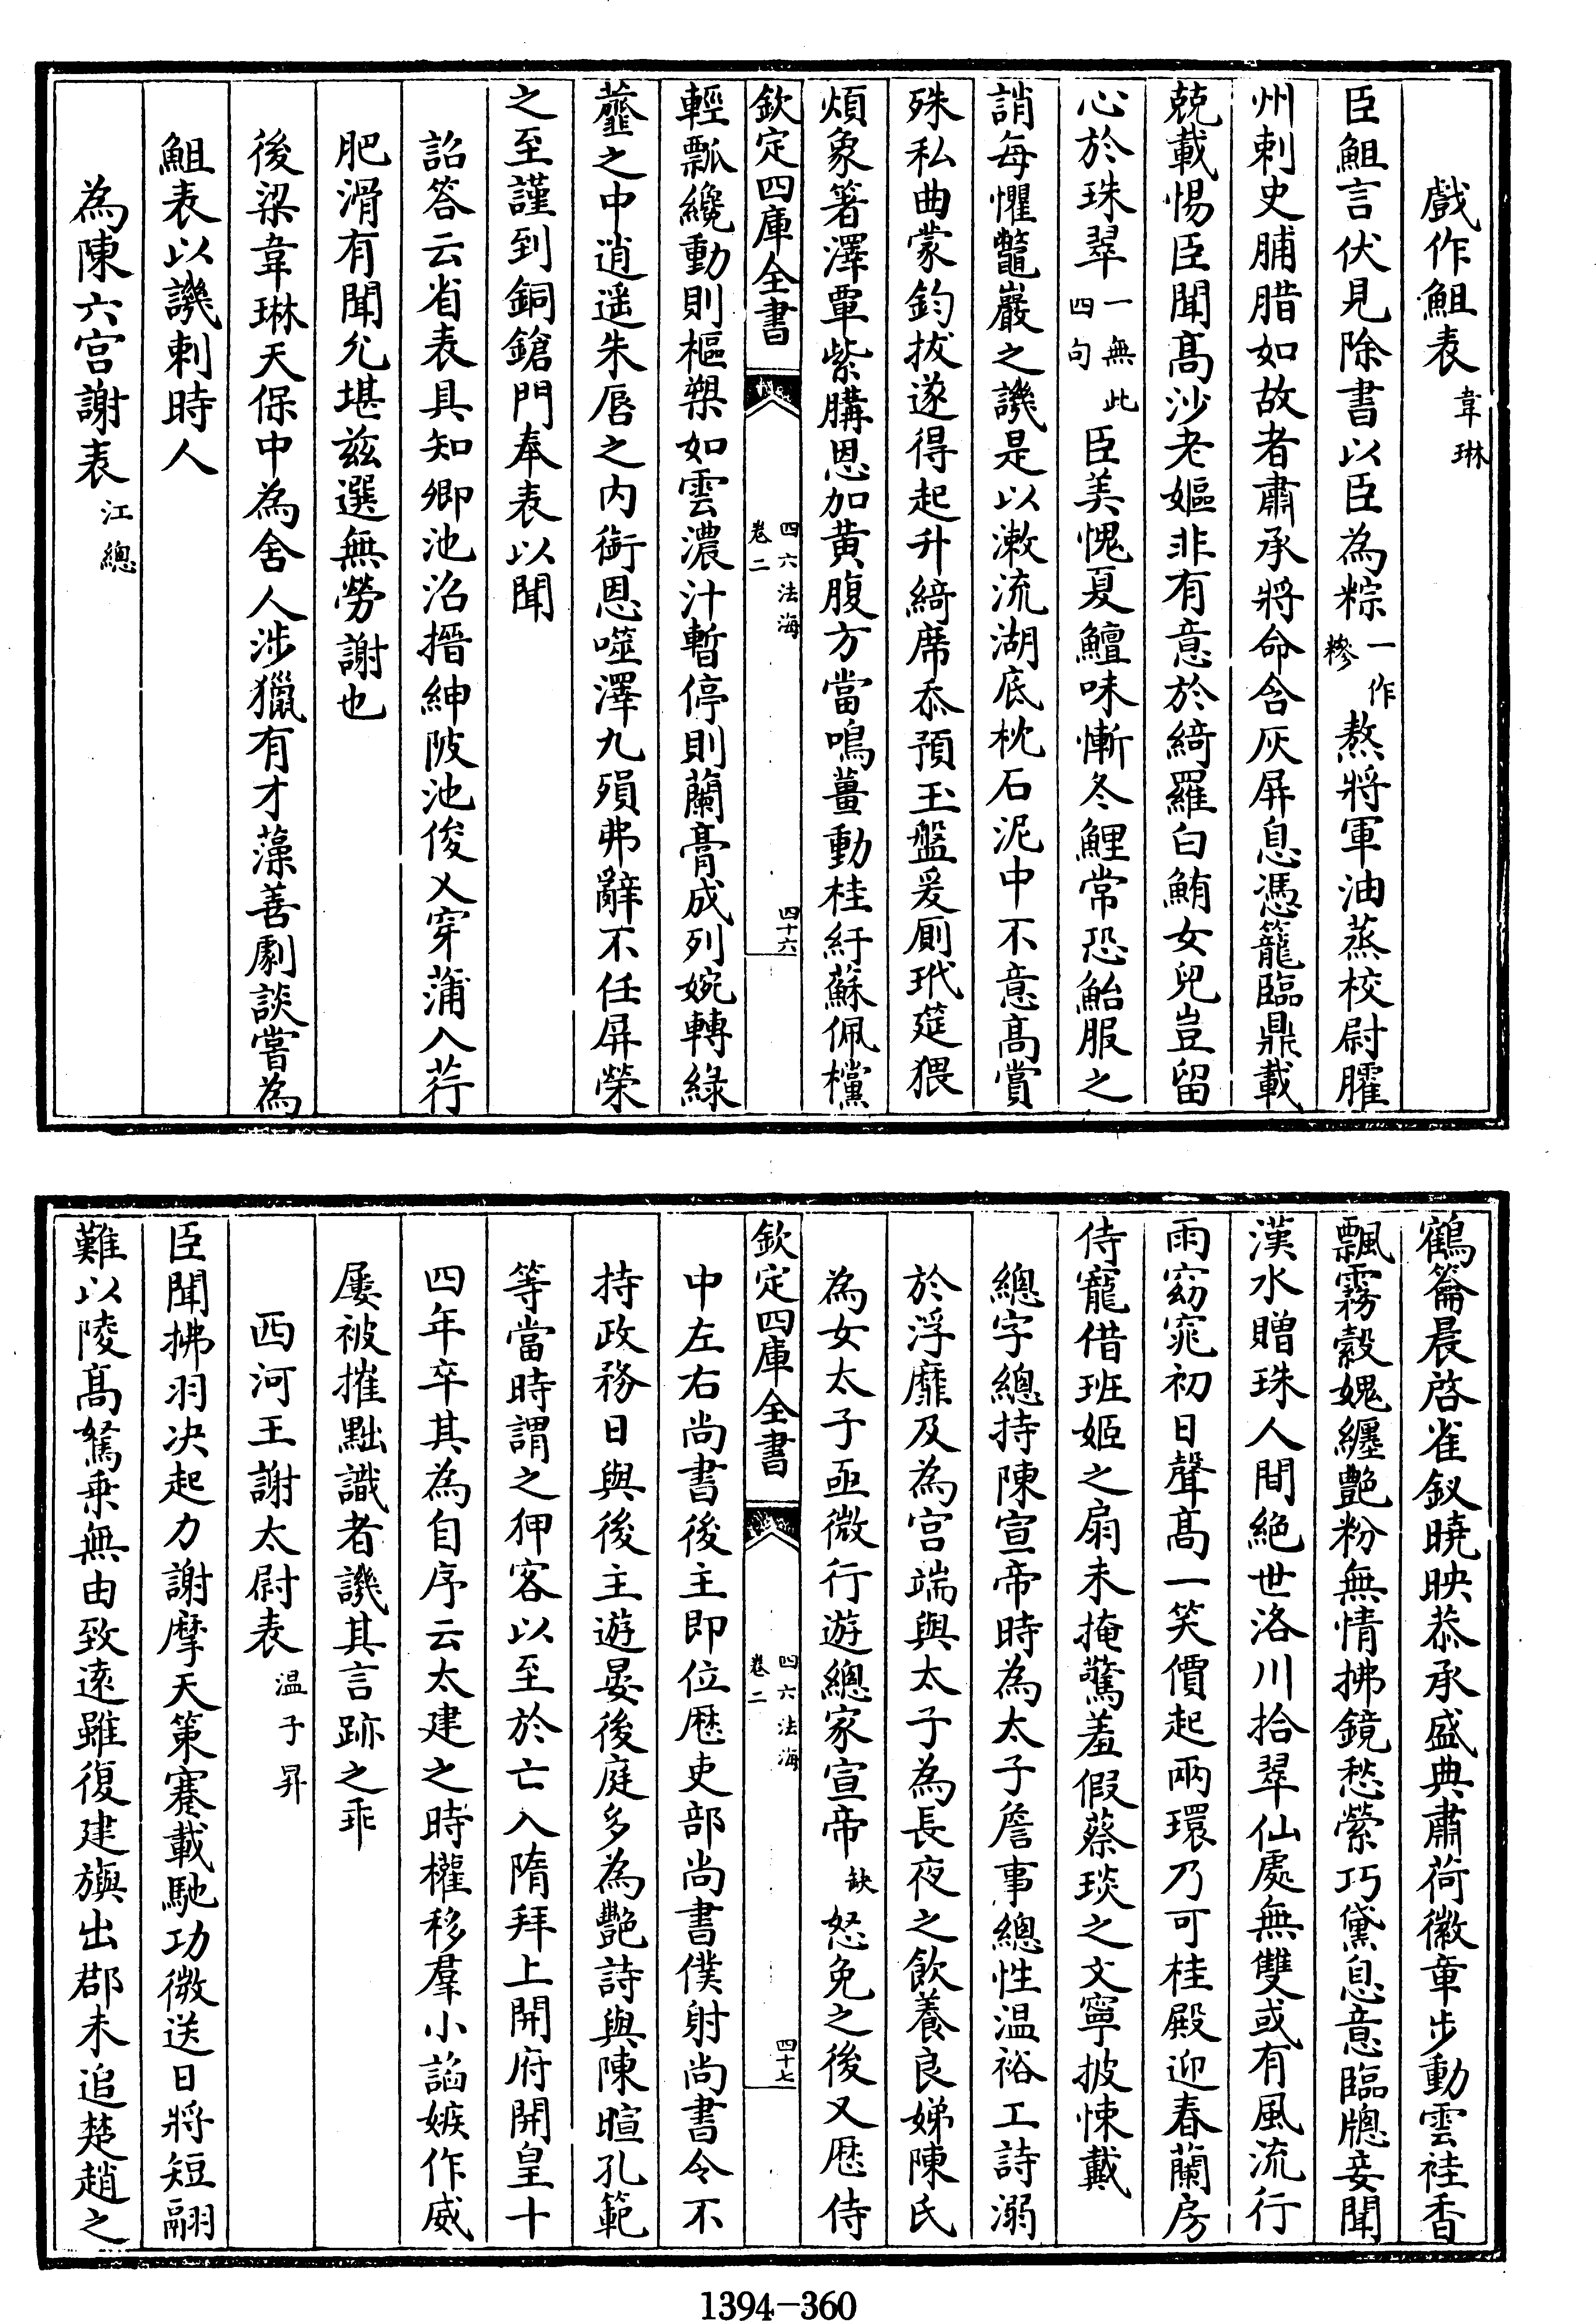 戲作䱉表韋琳
臣䱉言伏見除書以臣為粽一作糝熬將軍油蒸校尉臛
州刺史脯腊如故者肅承將命含灰屏息憑籠臨鼎載
兢載惕臣聞髙沙老嫗非有意於綺羅白鮪女兒豈留
心於珠翠一無此四句臣美愧夏鱣味慚冬鯉常恐鮐服之
誚每懼鼈巖之譏是以漱流湖底枕石泥中不意髙賞
殊私曲蒙鈞拔遂得起升綺席忝預玉盤爰厠玳筵猥
煩象箸澤覃紫䐟恩加黄腹方當鳴薑動桂紆蘇佩欓
欽定四庫全書
四六法海
卷二
四十六
輕瓢纔動則樞槊如雲濃汁暫停則蘭膏成列婉轉緑
虀之中逍遥朱唇之内銜恩噬澤九殞弗辭不任屏榮
之至謹到銅鎗門奉表以聞
詔答云省表具知卿池沼搢紳陂池俊乂穿蒲入荇
肥滑有聞允堪兹選無勞謝也
後梁韋琳天保中為舍人涉獵有才藻善劇談嘗為
䱉表以譏刺時人
為陳六宫謝表江總
鶴籥晨啓雀釵曉映恭承盛典肅荷徽章步動雲袿香
飄霧縠媿纒艷粉無情拂鏡愁縈巧黛息意臨牎妾聞
漢水贈珠人間絶世洛川拾翠仙處無雙或有風流行
雨窈窕初日聲髙一笑價起兩環乃可桂殿迎春蘭房
侍寵借班姬之扇未掩驚羞假蔡琰之文寧披悚戴
總字總持陳宣帝時為太子詹事總性温裕工詩溺
於浮靡及為宫端與太子為長夜之飲養良娣陳氏
為女太子亟微行遊總家宣帝缺怒免之後又厯侍
欽定四庫全書
四六法海
卷二
四十七
中左右尚書後主即位厯吏部尚書僕射尚書令不
持政務日與後主遊晏後庭多為艷詩與陳暄孔範
等當時謂之狎客以至於亡入隋拜上開府開皇十
四年卒其為自序云太建之時權移羣小諂嫉作威
屢被摧黜識者譏其言跡之乖
西河王謝太尉表温子昇
臣聞拂羽决起力謝摩天策蹇載馳功微送日將短翮
難以陵髙駑乗無由致逺雖復建旟出郡未追楚趙之
1394-360